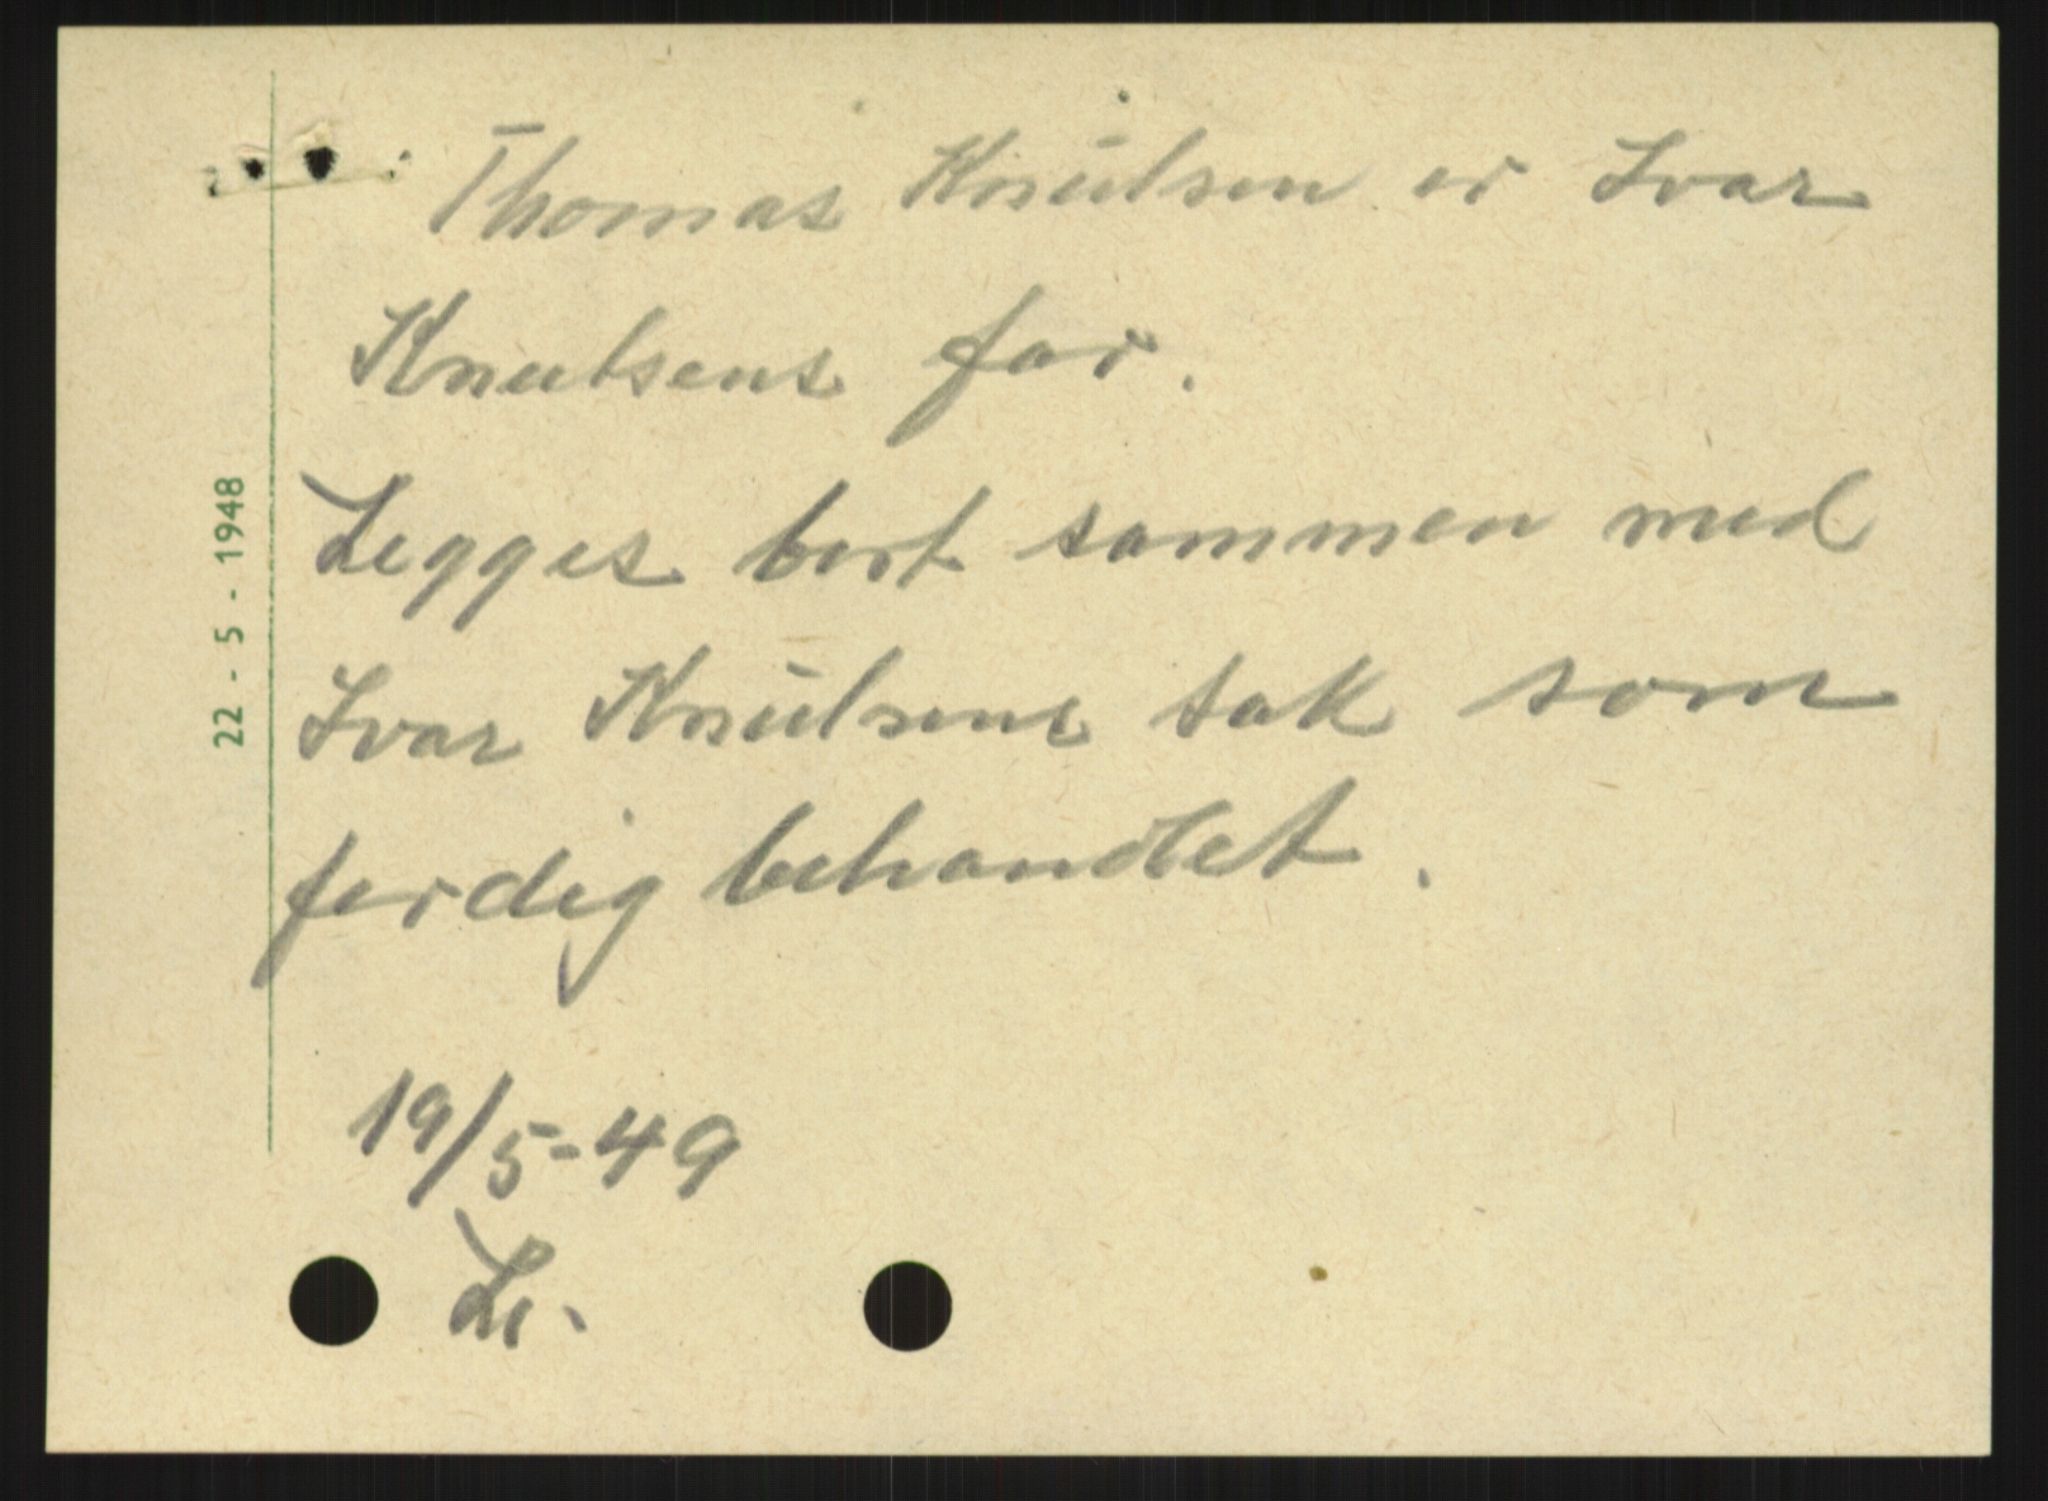 Thomas Knutsen er Ivar
Knutsens far.
Legges bort sammen med
Ivar Knutsens sak som
ferdig behandlet.
19/5-49
22 - 5 - 1948